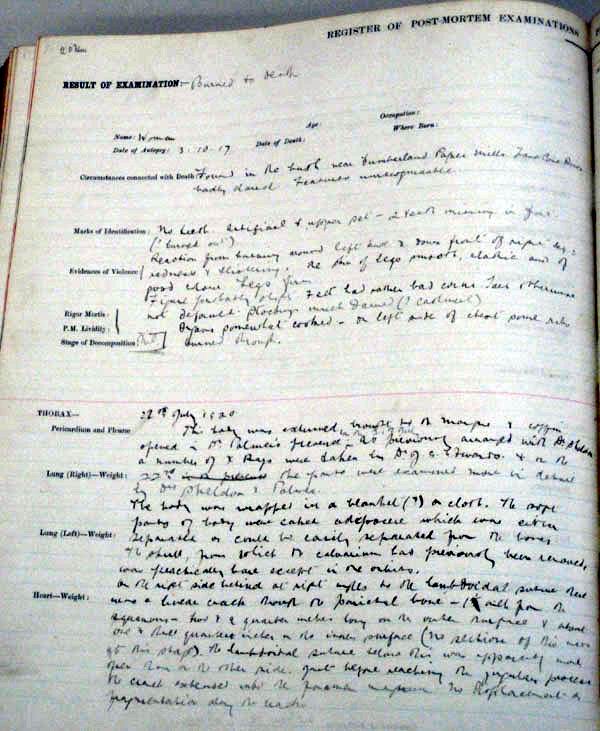 REGISTER OF POST-MORTEM EXAMINATIONS
RESULT OF EXAMINATION:- Burned to Death
Age:
Occupation:
Name: Woman
Date of Death:
Where Born:
Date of Autopsy: 3.10.17
Circumstances connected with Death Found in the bush near Cumberland Paper Mills Lane Cove River
badly charred Features unrecognisable
Marks of Identification: No teeth. Artificial upper set - 2 teeth missing in front
(? burned out)
Reaction from burning around left knee & down front of right leg:-
Evidences of Violence redness & blistering. The skin of legs smooth, elastic and of
good colour Legs firm
Figure probably Feet had rather bad corns Toes otherwise
Rigor Mortis: not deformed. Stockings much darned (? cashmere)
P.M. Lividity: Organs somewhat cooked - on left side of chest some ribs
Stage of Decomposition burned through.
THORAX— 22nd July 1920
Pericardium and Pleuræ This body was exhumed, brought to the morgue & coffin
opened in Dr Palmer's presence. As previously arranged with Dr Sheldon
a number of X Rays were taken by Dr Edwards. & on the
Lung (Right)—Weight: 22nd the parts were examined more in detail
by Drs Sheldon & Palmer.
The body was wrapped in a blanket (?) or cloth. The soft
parts of body were called adipocere which was either
Lung (Left)—Weight: separated or could be easily separated from the bones
The skull, from which the calvarium has previously been removed,
was practically bare except in the orbits.
On the right side behind at right angles to the lambdoidal suture there
Heart—Weight: was a linear crack through the parietal bone - from the
squamous - two & a quarter inches long on the outer surface & about
one & three quarters inches on the inner surface (no sections of this were
at this stage). The lambdoidal suture below this was apparently more
open than on the other side. Just before reaching the jugular process
the crack extended into the foramen magnum No displacement or
fragmentation along the crack.